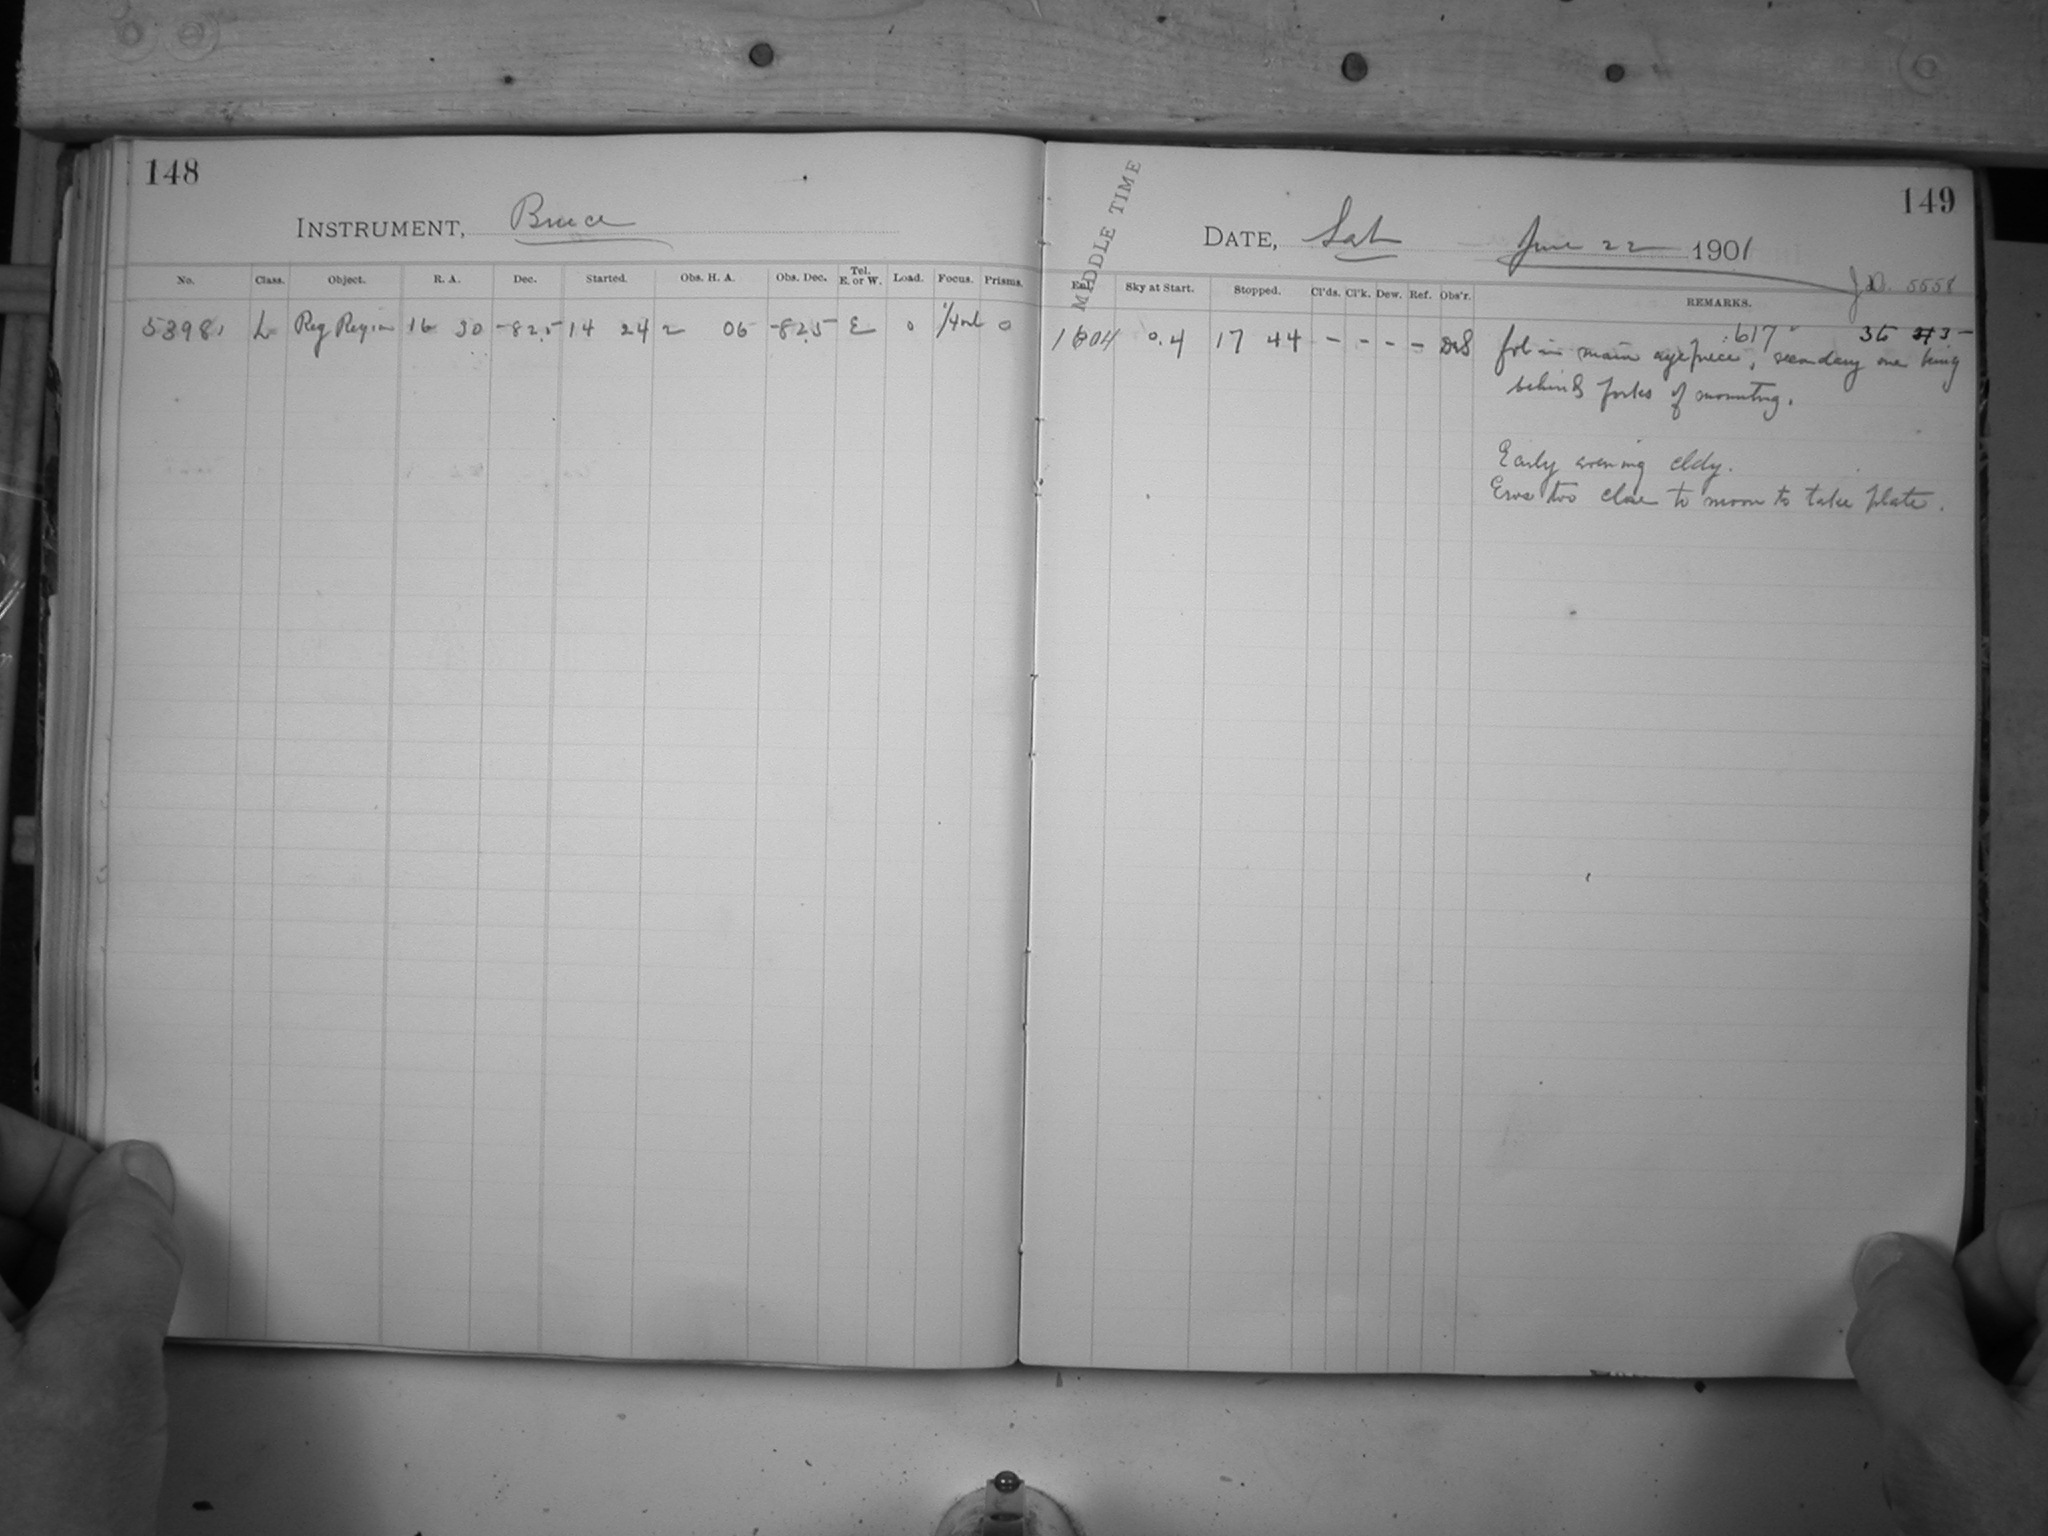 148
INSTRUMENT, Bruce
No. Class. Object. R. A. Dec. Started. Obs. H. A. Obs. Dec. Tel. E. or W. Load. Focus. Prisms.
5398 L Reg Region 16 30 -82.5 14 24 2 06 -82.5 E 0 0
149
MIDDLE TIME
DATE, Sat June 22 1901
J.D. 5558
Sky at Start. Stopped. Cl'ds. Cl'k. Dew. Ref. Obs'r. REMARKS.
1604 0.4 17 44 - - - - 617 36
fol in main eyepiece, secondary one being
behind forks of mounting.
Early evening cldy.
Eros too close to moon to take plate.